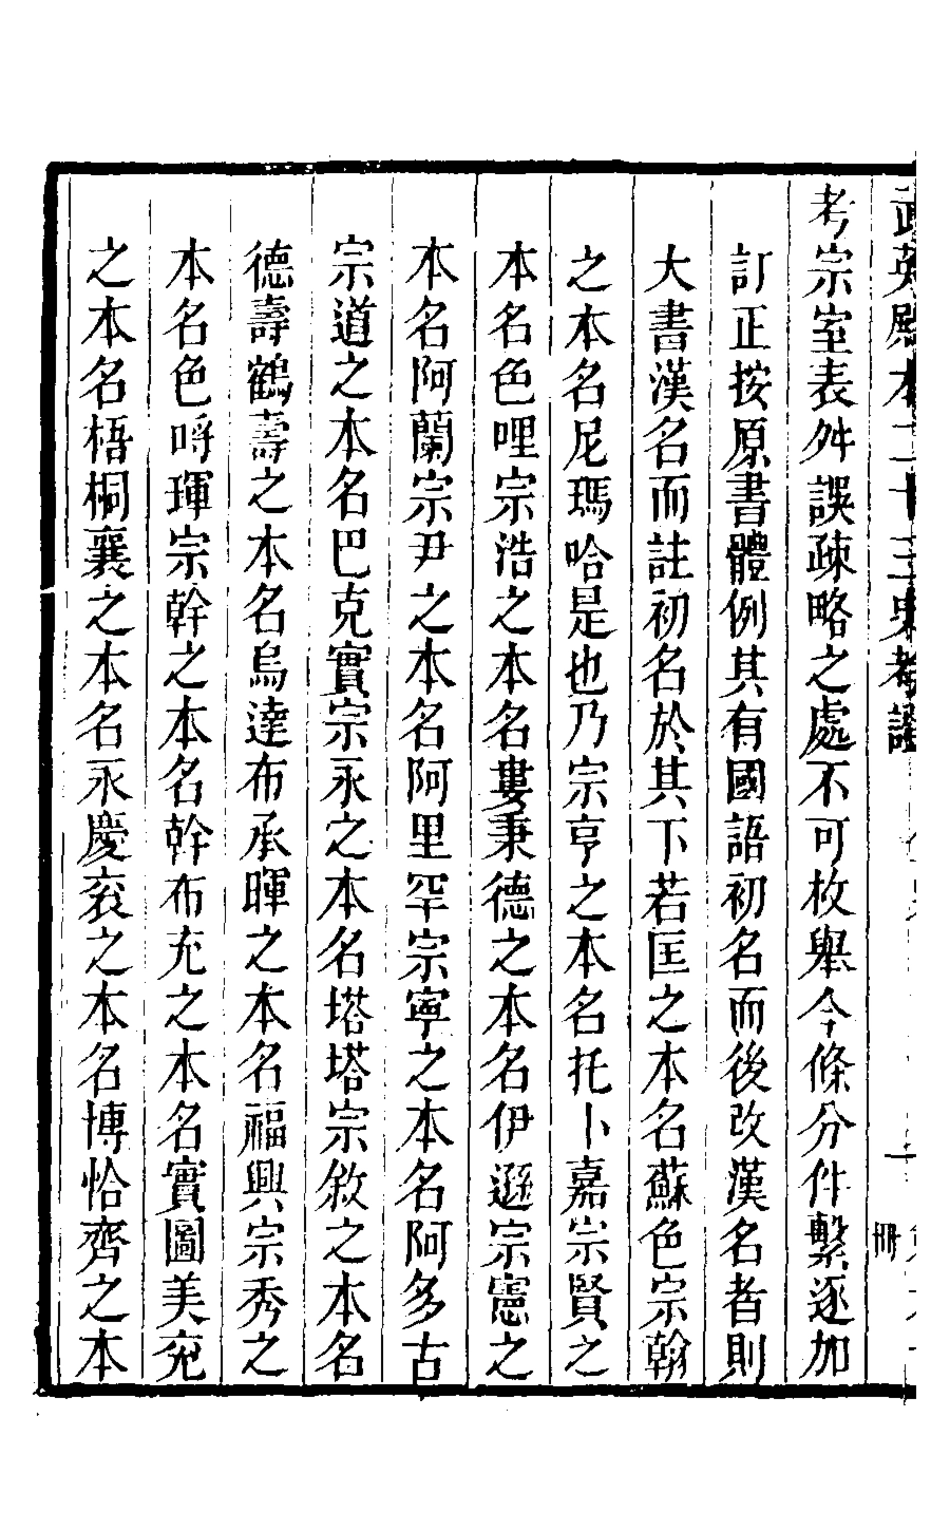 武英殿本二十三史考證
一
冊
考宗室表舛誤疎略之處不可枚舉今條分件繫逐加
訂正按原書體例其有國語初名而後改漢名者則
大書漢名而註初名於其下若匡之本名蘇色宗翰
之本名尼瑪哈是也乃宗亨之本名托卜嘉宗賢之
本名色哩宗浩之本名婁秉德之本名伊遜宗憲之
本名阿蘭宗尹之本名阿里罕宗寧之本名阿多古
宗道之本名巴克實宗永之本名塔塔宗敘之本名
德壽鶴壽之本名烏達布承暉之本名福興宗秀之
本名色哷琿宗幹之本名幹布充之本名實圖美兖
之本名梧桐襄之本名永慶衮之本名博恰齊之本